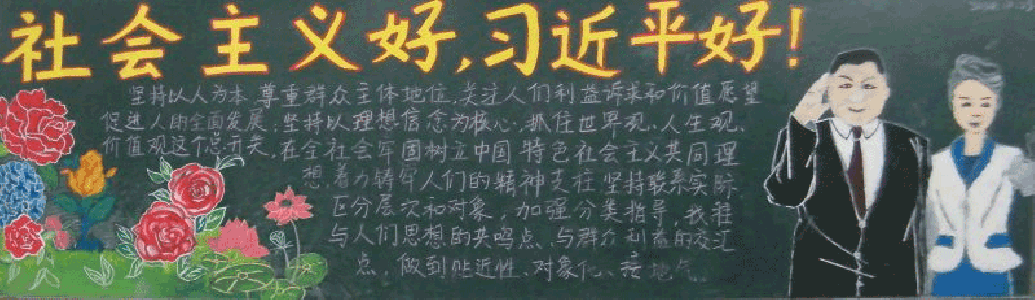 社会主义好,习近平好!
坚持以人为本,尊重群众主体地位,关注人们利益诉求和价值愿望
促进人的全面发展,坚持以理想信念为核心,抓住世界观、人生观、
价值观这个总开关,在全社会牢固树立中国特色社会主义共同理
想,着力铸牢人们的精神支柱,坚持联系实际
区分层次和对象,加强分类指导,找准
与人们思想的共鸣点、与群众利益的交汇
点,做到贴近性、对象化、接地气。